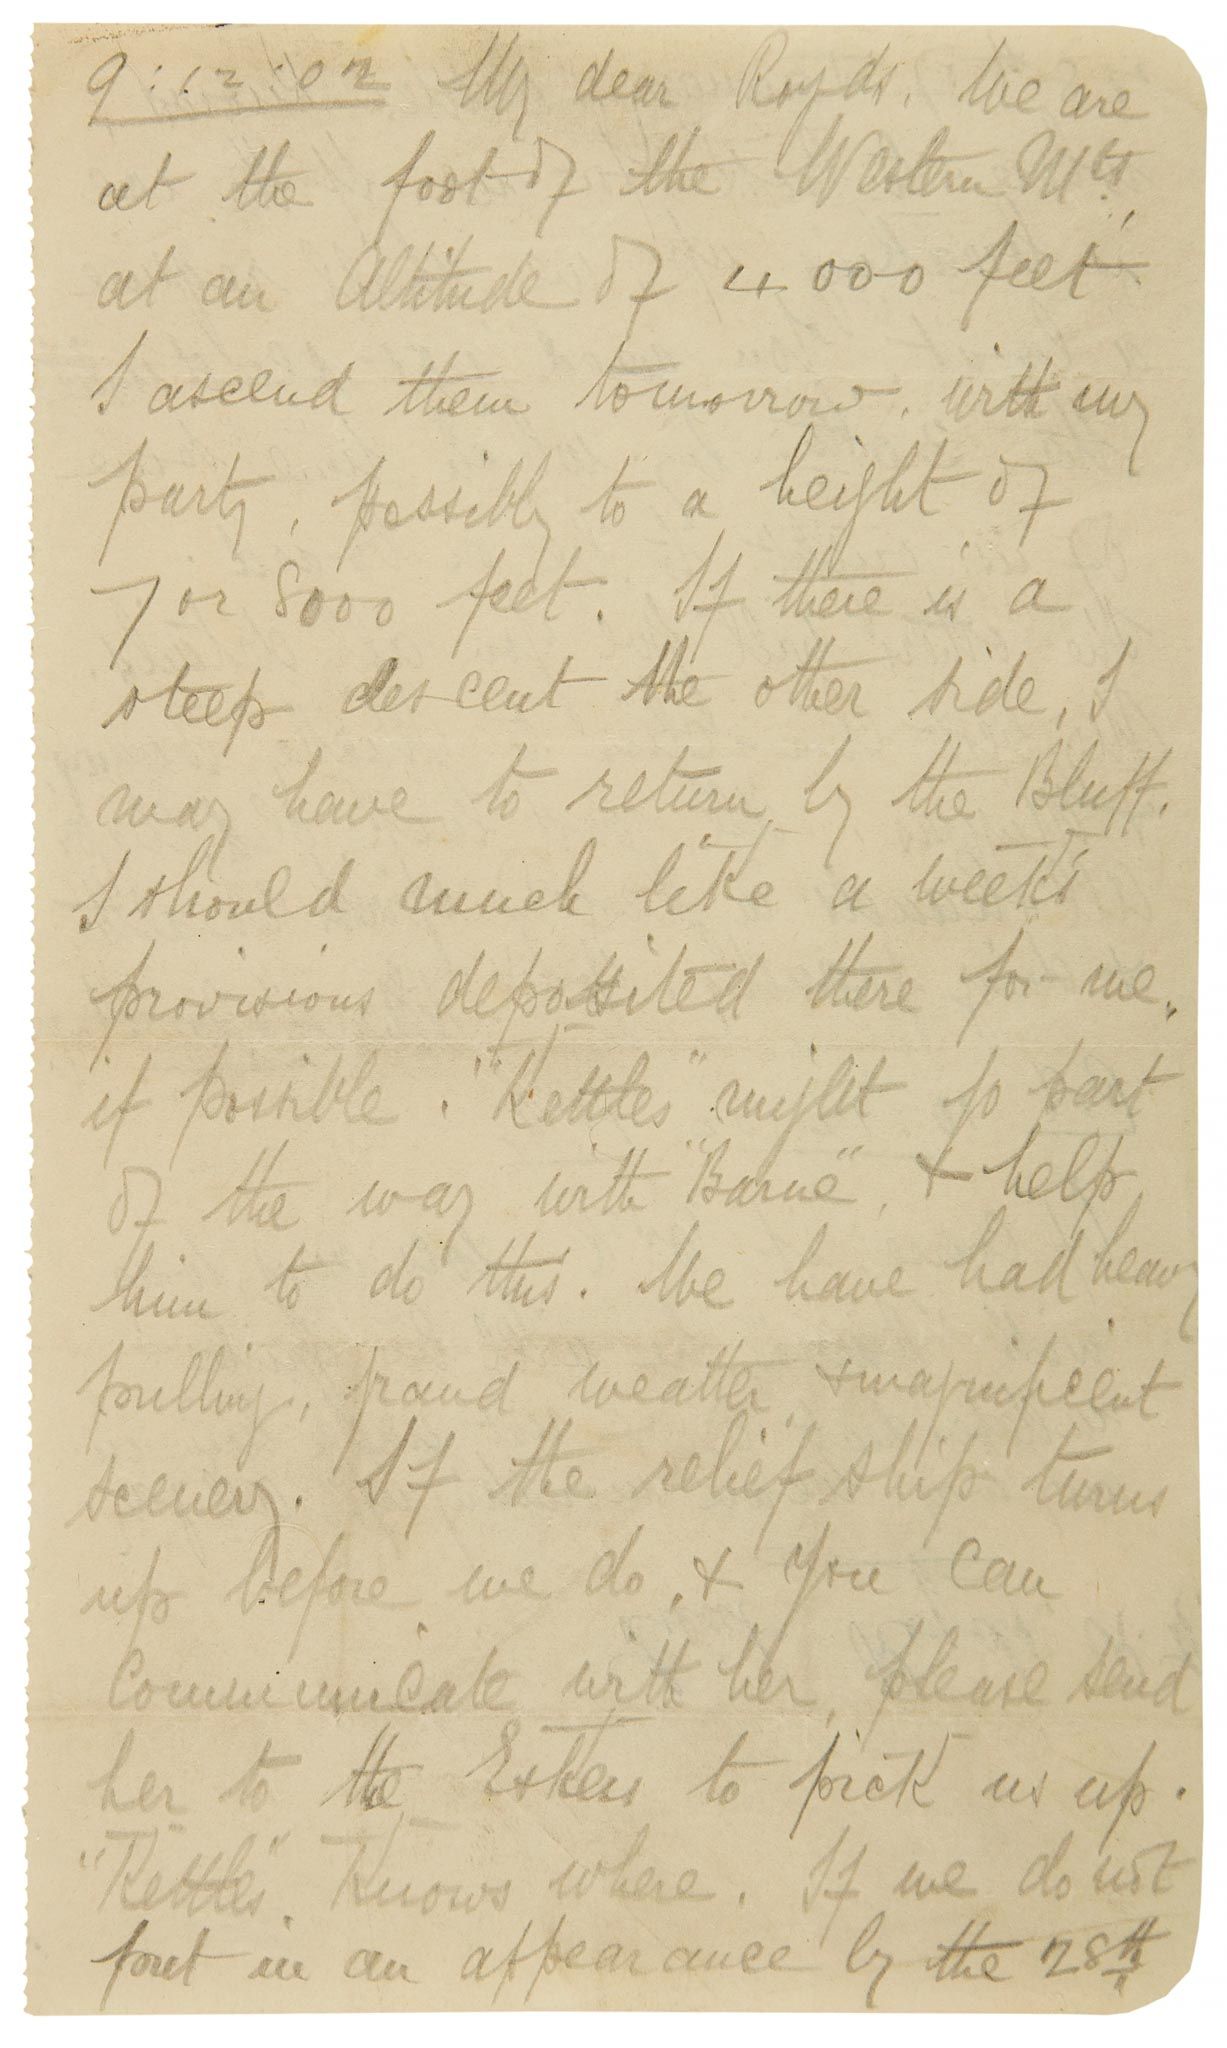 9:12:02 My dear Royds. We are
at the foot of the Western Mts,
at an Altitude of 4000 feet.
I ascend them tomorrow, with my
party, possibly to a height of
7 or 8000 feet. If there is a
steep descent the other side, I
may have to return by the Bluff.
I should much like a week's
provisions deposited there for me,
if possible. "Kettles" might go part
of the way with "Barne", & help
him to do this. We have had heavy
pulling, grand weather, & magnificent
scenery. If the relief ship turns
up before we do, & you can
Communicate with her, please send
her to the Eskers to pick us up.
"Kettles" knows where. If we do not
put in an appearance by the 28th